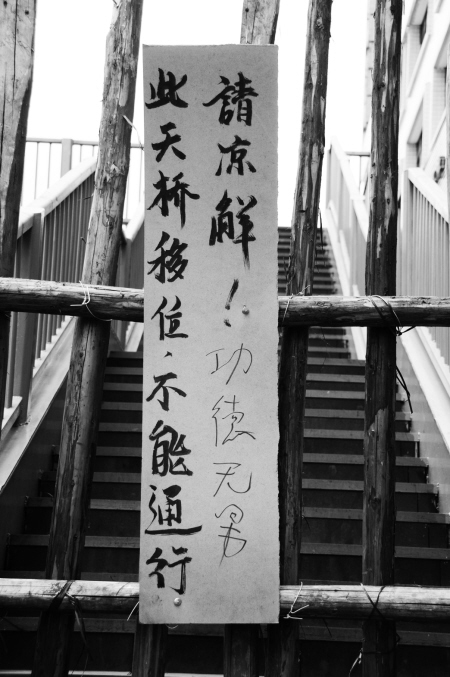 此天桥移位，不能通行
請凉解！功德无男